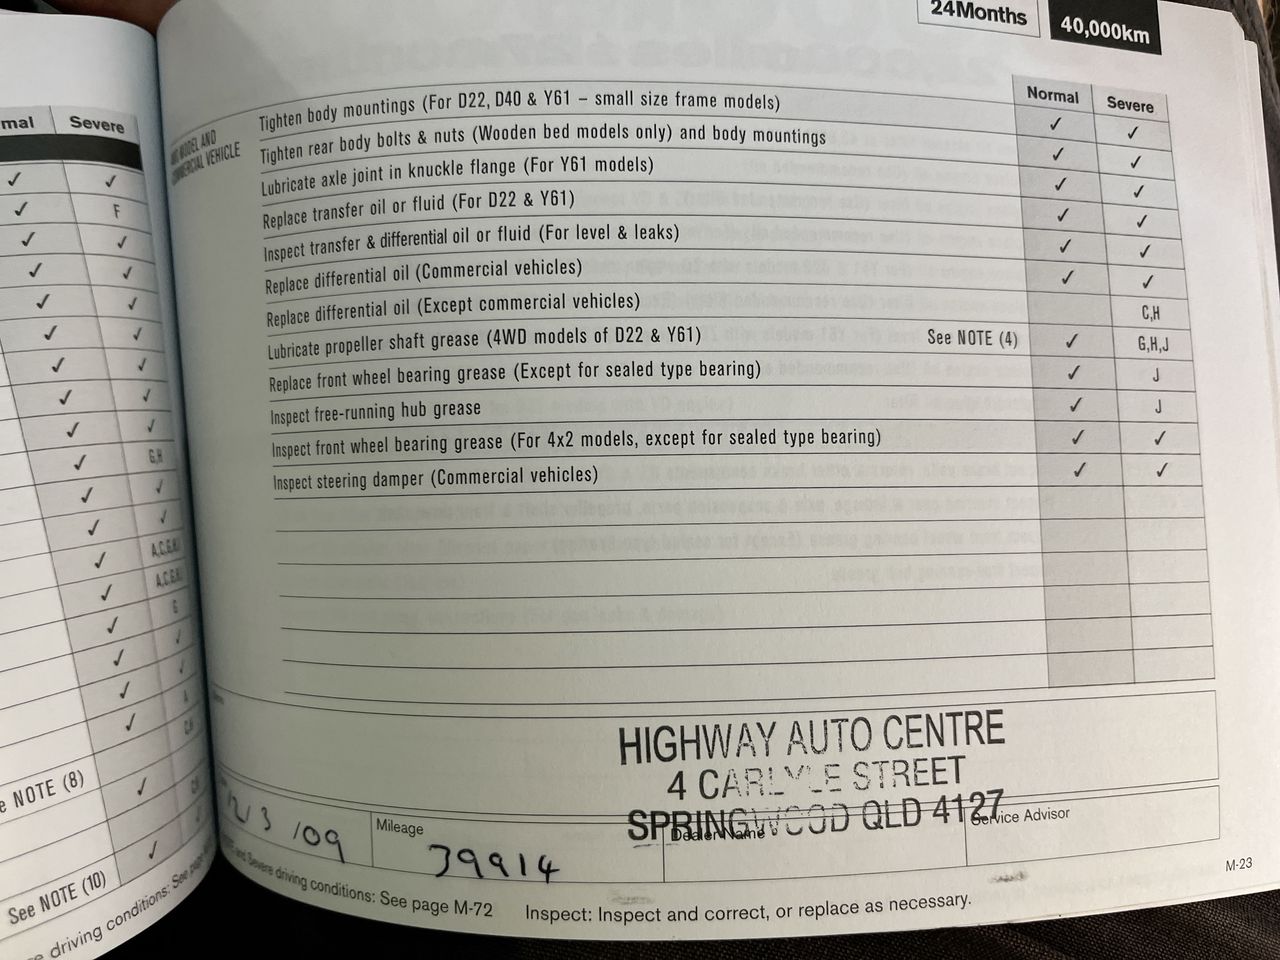 24Months
40,000km
mal Severe
Normal Severe
COMMERCIAL VEHICLE
Tighten body mountings (For D22, D40 & Y61 – small size frame models) ✓ ✓
Tighten rear body bolts & nuts (Wooden bed models only) and body mountings ✓ ✓
Lubricate axle joint in knuckle flange (For Y61 models) ✓ ✓
Replace transfer oil or fluid (For D22 & Y61) ✓ ✓
Inspect transfer & differential oil or fluid (For level & leaks) ✓ ✓
Replace differential oil (Commercial vehicles) ✓ ✓
Replace differential oil (Except commercial vehicles) C,H
Lubricate propeller shaft grease (4WD models of D22 & Y61) See NOTE (4) ✓ G,H,J
Replace front wheel bearing grease (Except for sealed type bearing) ✓ J
Inspect free-running hub grease ✓ J
Inspect front wheel bearing grease (For 4x2 models, except for sealed type bearing) ✓ ✓
Inspect steering damper (Commercial vehicles) ✓ ✓
F
G,H
G
e NOTE (8)
See NOTE (10)
e driving conditions: See
HIGHWAY AUTO CENTRE
4 CARLYLE STREET
SPRINGWOOD QLD 4127
3/09
Mileage
39914
Dealer Name
Service Advisor
and Severe driving conditions: See page M-72
Inspect: Inspect and correct, or replace as necessary.
M-23